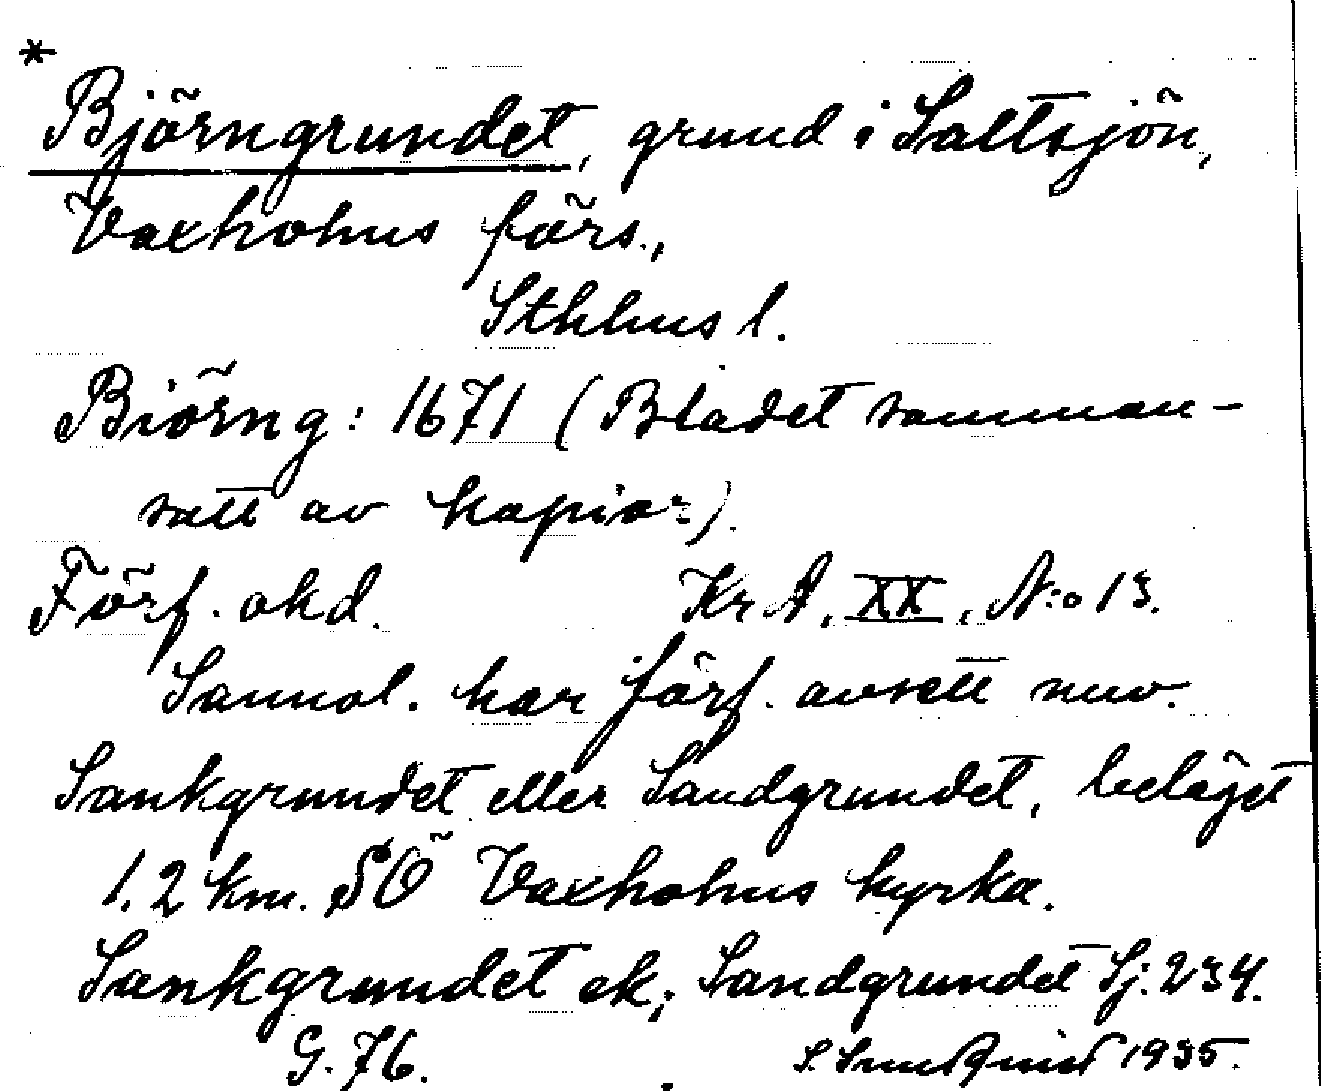 *
Björngrundet, grund i Saltsjön,
Vaxholms förs.,
Sthlms l.
Biörng: 1671 (Bladet samman-
satt av kopior).
Förf. okd. Kr A, XX, N:o 13.
Sannol. har förf. avsett nuv.
Sankgrundet eller Sandgrundet, beläget
1.2 km. SÖ Vaxholms kyrka.
Sankgrundet ek; Sandgrundet Sj. 234.
G. 76. 1935.